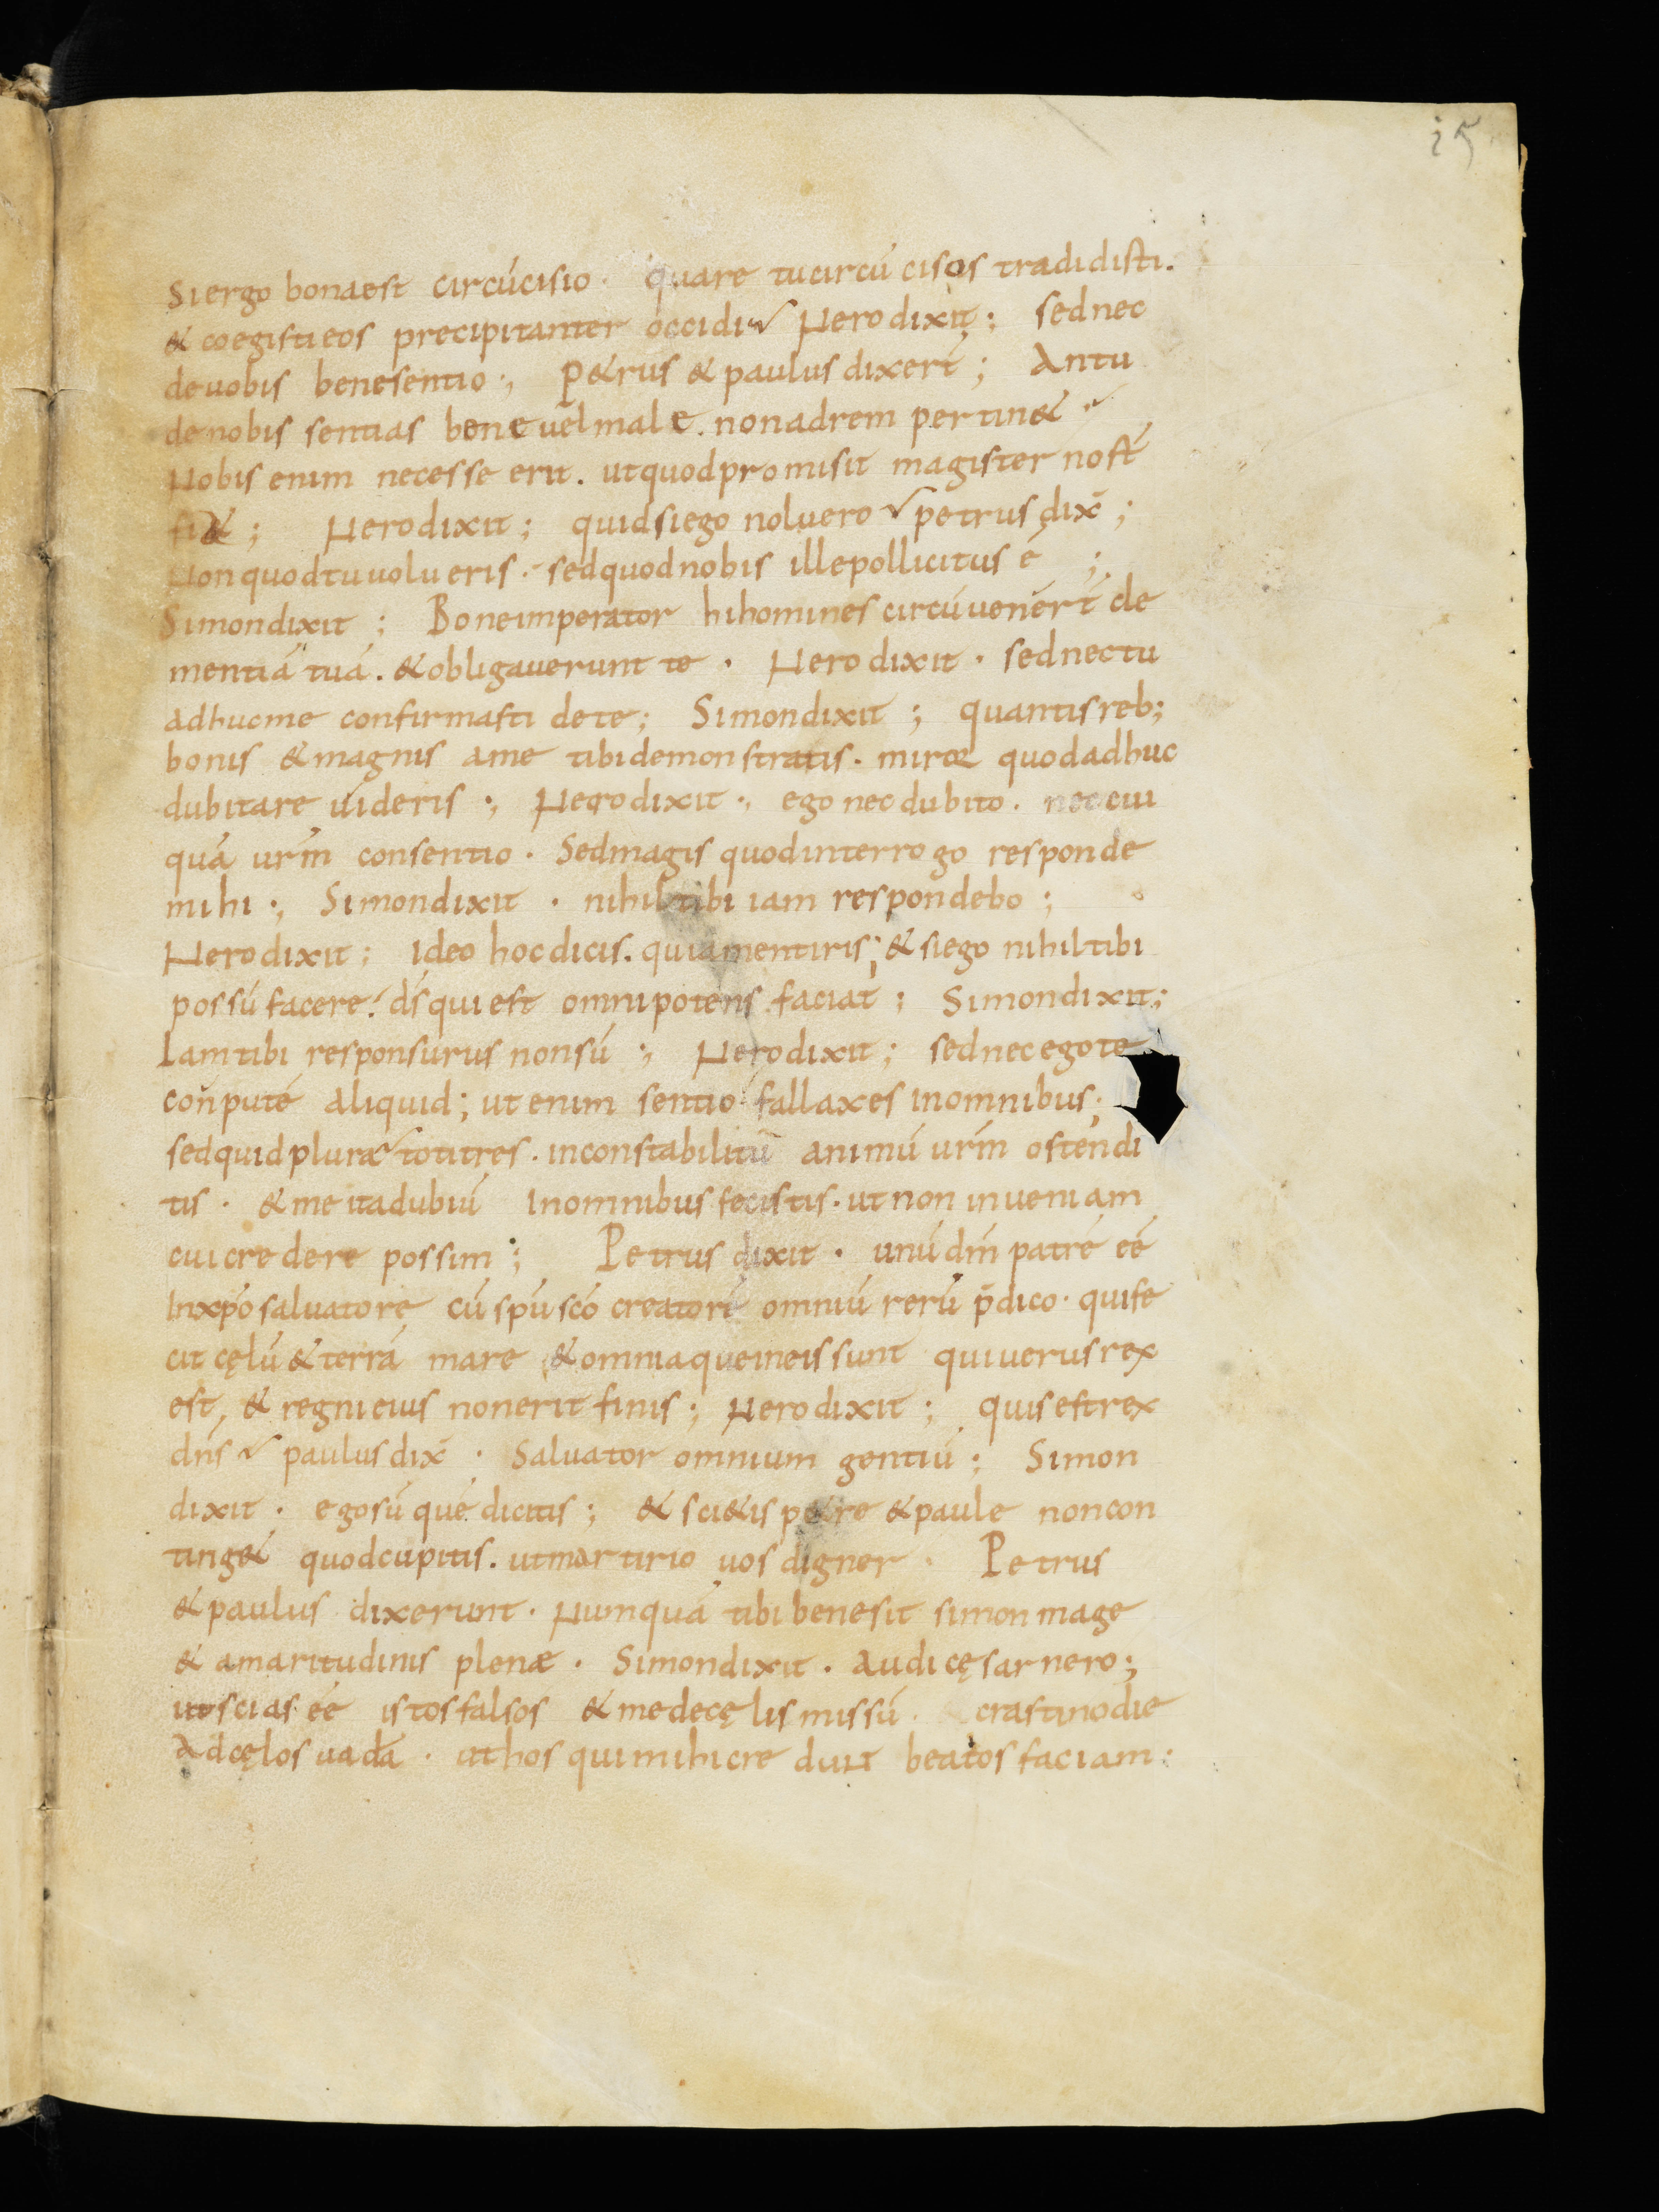 15
Si ergo bona est circūcisio · quare tu circū cisos tradidisti.
& coegisti eos precipitanter occidi? Nero dixit; sed nec
de uobis bene sentio ·, P&rus & paulus dixert̄; An tu
de nobis sentias bene uel male. non ad rem pertin&
Nobis enim necesse erit. ut quod promisit magister nost̄
fi&; Nero dixit; quid si ego noluero? petrus dix̄;
Non quod tu uolueris · sed quod nobis ille pollicitus ē;
Simon dixit; Bone imperator hi homines circūuenert̄ cle
mentiā tuā. & obligauerunt te · Nero dixit · sed nec tu
adhuc me confirmasti de te; Simon dixit; quantis reb;
bonis & magnis a me tibi demonstratis · miror quod adhuc
dubitare uideris ·, Nero dixit ·, ego nec dubito · nec cui
quā ur̄m consentio · Sed magis quod interrogo responde
mihi ·, Simon dixit · nihil tibi iam respondebo;
Nero dixit; Ideo hoc dicis. quia mentiris; & si ego nihil tibi
possū facere. d̄s qui est omnipotens faciat; Simon dixit;
Iam tibi responsurus non sū ·, Nero dixit; sed nec ego te
con̄putē aliquid; ut enim sentio fallax es in omnibus;
sed quid plura? toti tres · inconstabilitū animū ur̄m ostendi
tis · & me ita dubiū In omnibus fecistis · ut non inueniam
cui credere possim; Petrus dixit · unū dm̄ patrē eē
In xp̄o saluatore cū sp̄u sc̄o creatorē omniū rerū p̄dico · qui fe
cit cęlū & terrā mare & omnia que in eis sunt qui uerus rex
est, & regni eius non erit finis; Nero dixit; quis est rex
dn̄s? paulus dix̄ · Saluator omnium gentiū; Simon
dixit · ego sū quē dicitis; & sci&is p&re & paule non con
ting& quod cupitis. ut martirio uos digner · Petrus
& paulus dixerunt · Numquā tibi bene sit simon mage
& amaritudinis plenæ · Simon dixit · Audi cęsar nero;
ut scias eē istos falsos & me de cęlis missū · crastino die
Ad cęlos uadā · ut hos qui mihi credunt beatos faciam: